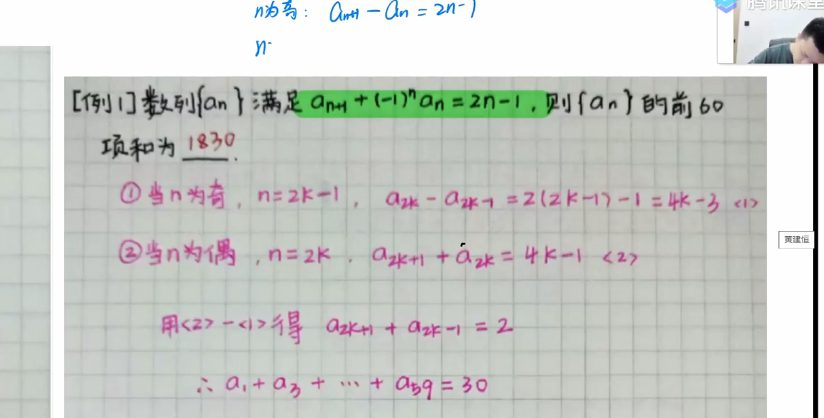 n为奇: aₙ₊₁ - aₙ = 2n-1
n
腾讯课堂
[例1] 数列{aₙ}满足 aₙ₊₁+(-1)ⁿaₙ=2n-1, 则{aₙ}的前60
项和为 1830.
①当n为奇, n=2k-1, a₂ₖ - a₂ₖ₋₁ = 2(2k-1)-1 = 4k-3 <1>
②当n为偶, n=2k. a₂ₖ₊₁ + a₂ₖ = 4k-1 <2>
黄建恒
用<2>-<1>得 a₂ₖ₊₁ + a₂ₖ₋₁ = 2
∴ a₁ + a₃ + ⋯ + a₅₉ = 30